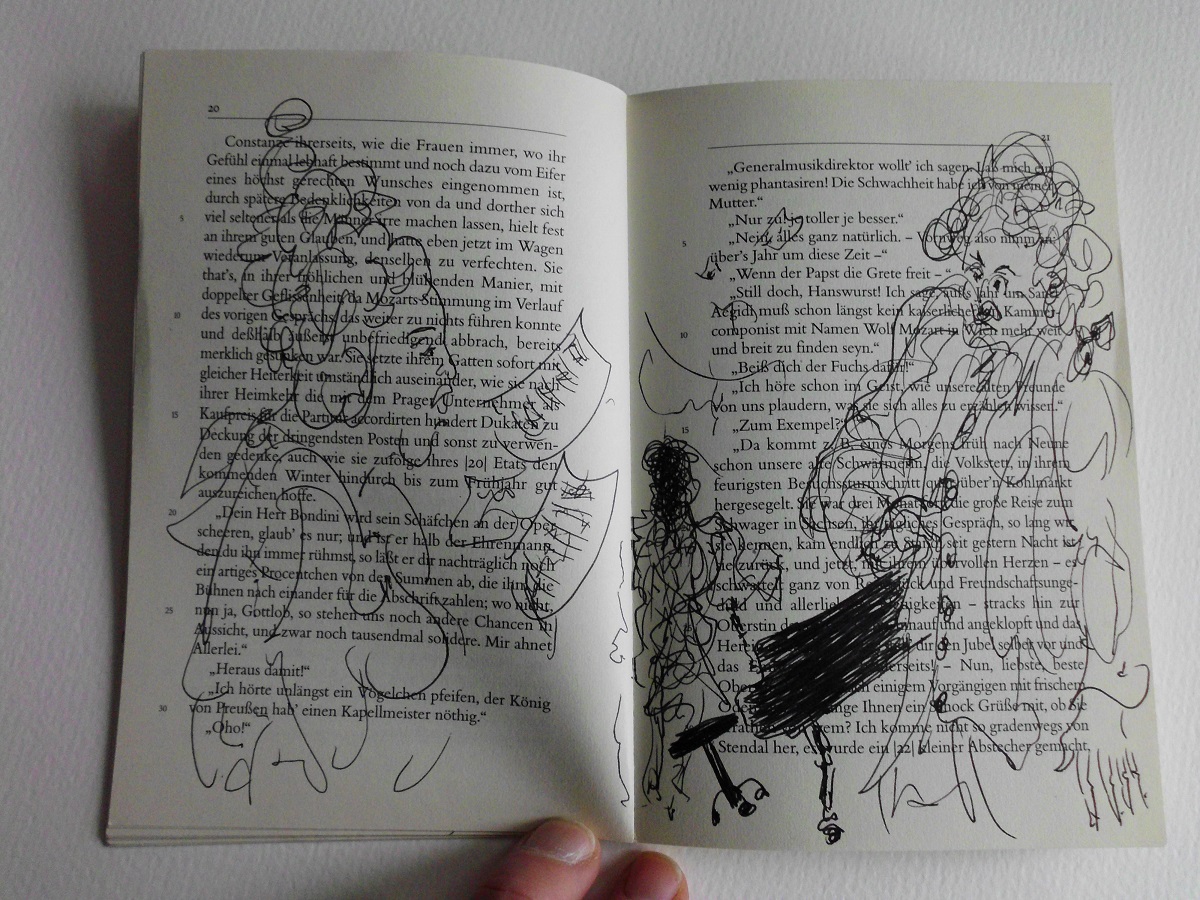 20
Constanze ihrerseits, wie die Frauen immer, wo ihr
Gefühl einmal lebhaft bestimmt und noch dazu vom Eifer
eines höchst gerechten Wunsches eingenommen ist,
durch spätere Bedenklichkeiten von da und dorther sich
5 viel seltener als die Männer irre machen lassen, hielt fest
an ihrem guten Glauben, und hatte eben jetzt im Wagen
wiederum Veranlassung, denselben zu verfechten. Sie
that's, in ihrer fröhlichen und blühenden Manier, mit
doppelter Geflissenheit, da Mozarts Stimmung im Verlauf
10 des vorigen Gesprächs, das weiter zu nichts führen konnte
und deßhalb äußerst unbefriedigend abbrach, bereits
merklich gesunken war. Sie setzte ihrem Gatten sofort mit
gleicher Heiterkeit umständlich auseinander, wie sie nach
ihrer Heimkehr die mit dem Prager Unternehmer als
15 Kaufpreis für die Partitur accordirten hundert Dukaten zu
Deckung der dringendsten Posten und sonst zu verwen-
den gedenke, auch wie sie zufolge ihres |20| Etats den
kommenden Winter hindurch bis zum Frühjahr gut
auszureichen hoffe.
20 „Dein Herr Bondini wird sein Schäfchen an der Oper
scheeren, glaub' es nur; und ist er halb der Ehrenmann,
den du ihn immer rühmst, so läßt er dir nachträglich noch
ein artiges Procentchen von den Summen ab, die ihm die
Bühnen nach einander für die Abschrift zahlen; wo nicht,
25 nun ja, Gottlob, so stehen uns noch andere Chancen in
Aussicht, und zwar noch tausendmal solidere. Mir ahnet
Allerlei.“
„Heraus damit!“
„Ich hörte unlängst ein Vögelchen pfeifen, der König
30 von Preußen hab' einen Kapellmeister nöthig.“
„Oho!“
21
„Generalmusikdirektor wollt' ich sagen. Laß mich ein
wenig phantasiren! Die Schwachheit habe ich von meiner
Mutter.“
„Nur zu! je toller je besser.“
5 „Nein, alles ganz natürlich. – Vornweg also nimm an:
über's Jahr um diese Zeit –“
„Wenn der Papst die Grete freit –“
„Still doch, Hanswurst! Ich sage, aufs Jahr um Sanct
Aegidi muß schon längst kein kaiserlicher Kammer-
10 componist mit Namen Wolf Mozart in Wien mehr weit
und breit zu finden seyn.“
„Beiß dich der Fuchs dafür!“
„Ich höre schon im Geist, wie unsere alten Freunde
von uns plaudern, was sie sich alles zu erzählen wissen.“
15 „Zum Exempel?“
„Da kommt z. B. eines Morgens früh nach Neune
schon unsere alte Schwärmerin, die Volkstett, in ihrem
feurigsten Besuchssturmschritt quer über'n Kohlmarkt
hergesegelt. Sie war drei Monat fort, die große Reise zum
Schwager in Sachsen, ihr tägliches Gespräch, so lang wir
sie kennen, kam endlich zu Stand; seit gestern Nacht ist
sie zurück, und jetzt, mit ihrem übervollen Herzen – es
schwattelt ganz von und Freundschaftsunge-
duld und allerliebsten – stracks hin zur
Oberstin hinauf und angeklopft und das
Herein dir den Jubel selber vor und
das – Nun, liebste, beste
einigem Vorgängigen mit frischem
Ihnen ein Schock Grüße mit, ob Sie
Ich komme nicht so gradenwegs von
Stendal her, es wurde ein |22| kleiner Abstecher gemacht,